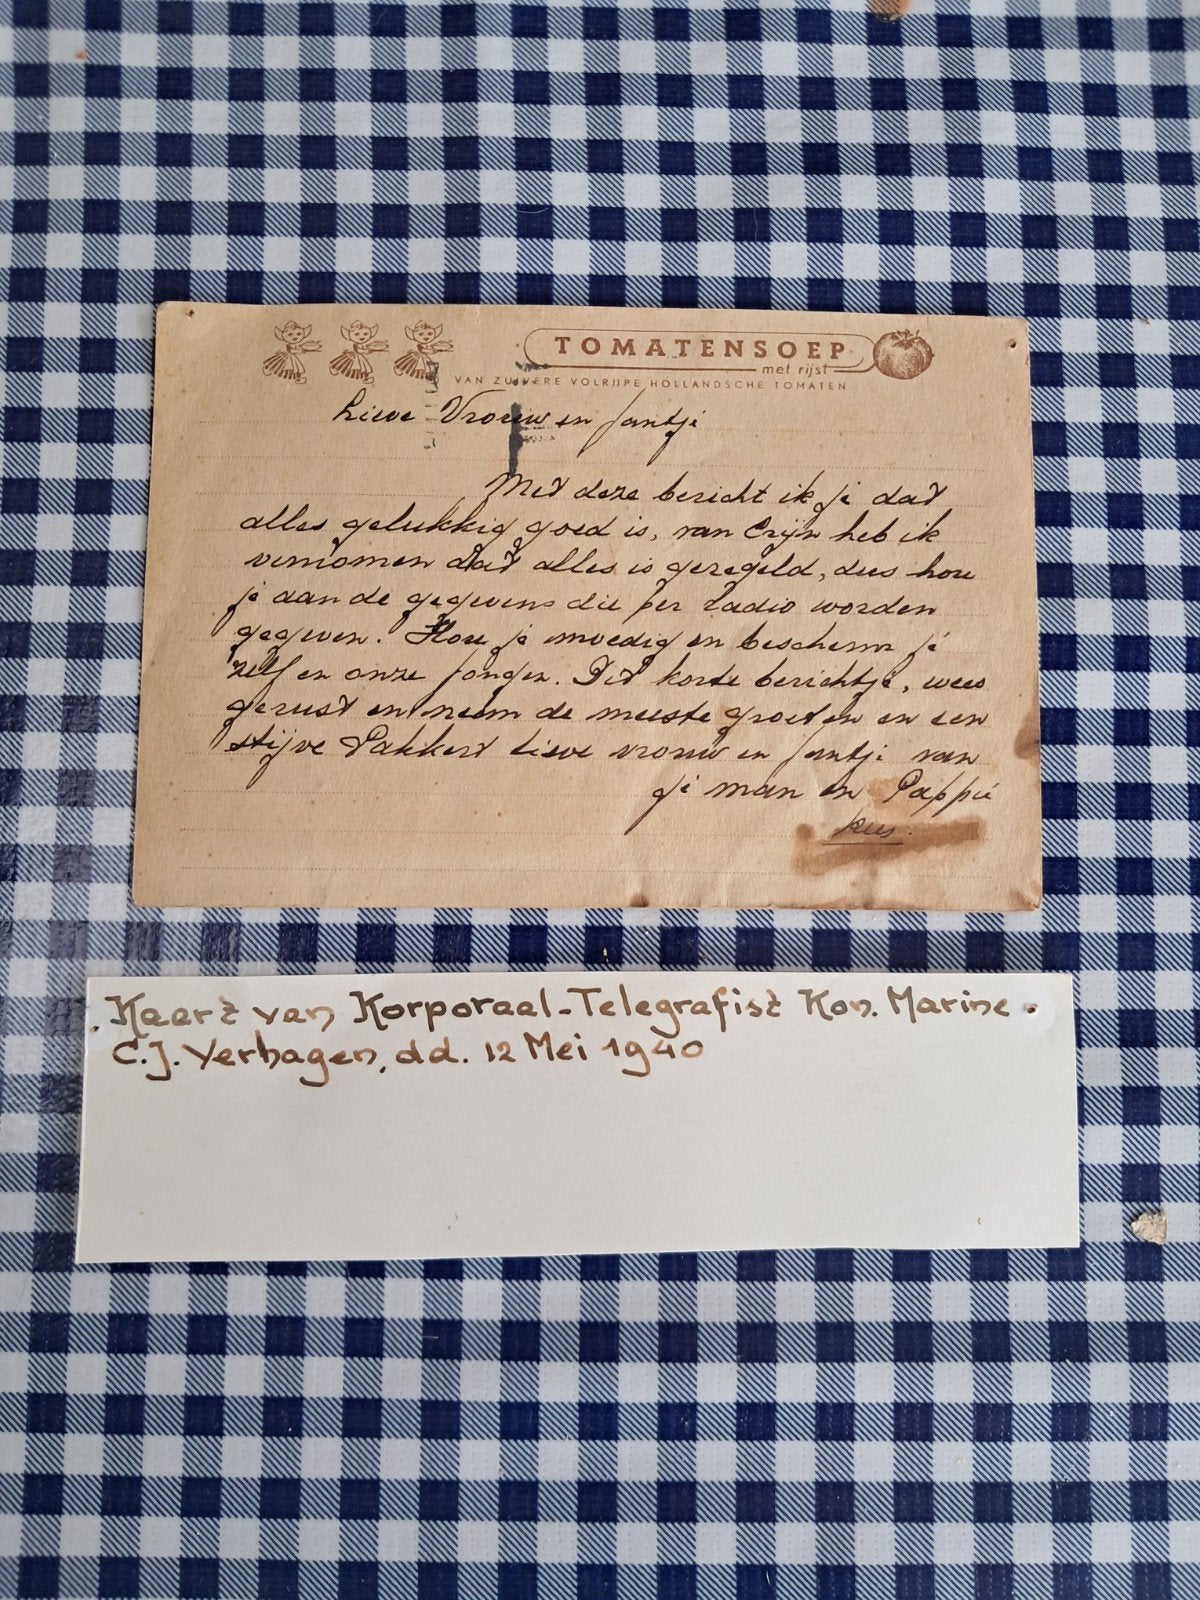 TOMATENSOEP
met rijst
VAN ZUIVERE VOLRIJPE HOLLANDSCHE TOMATEN
Lieve Vrouw en Jantji
Met deze bericht ik ji dat
alles gelukkig goed is, van Crijn heb ik
vernomen dat alles is geregeld, dus hou
je aan de gegevens die per radio worden
gegeven. Hou je moedig en bescherm ji
zelf en onze jongen. Dit korte berichtje, wees
gerust en neem de meeste groeten en een
stijve Pakkert lieve vrouw en Jantji van
ji man en Pappie
Kees.
Kaart van Korporaal-Telegrafist Kon. Marine
C.J. Verhagen, dd. 12 Mei 1940